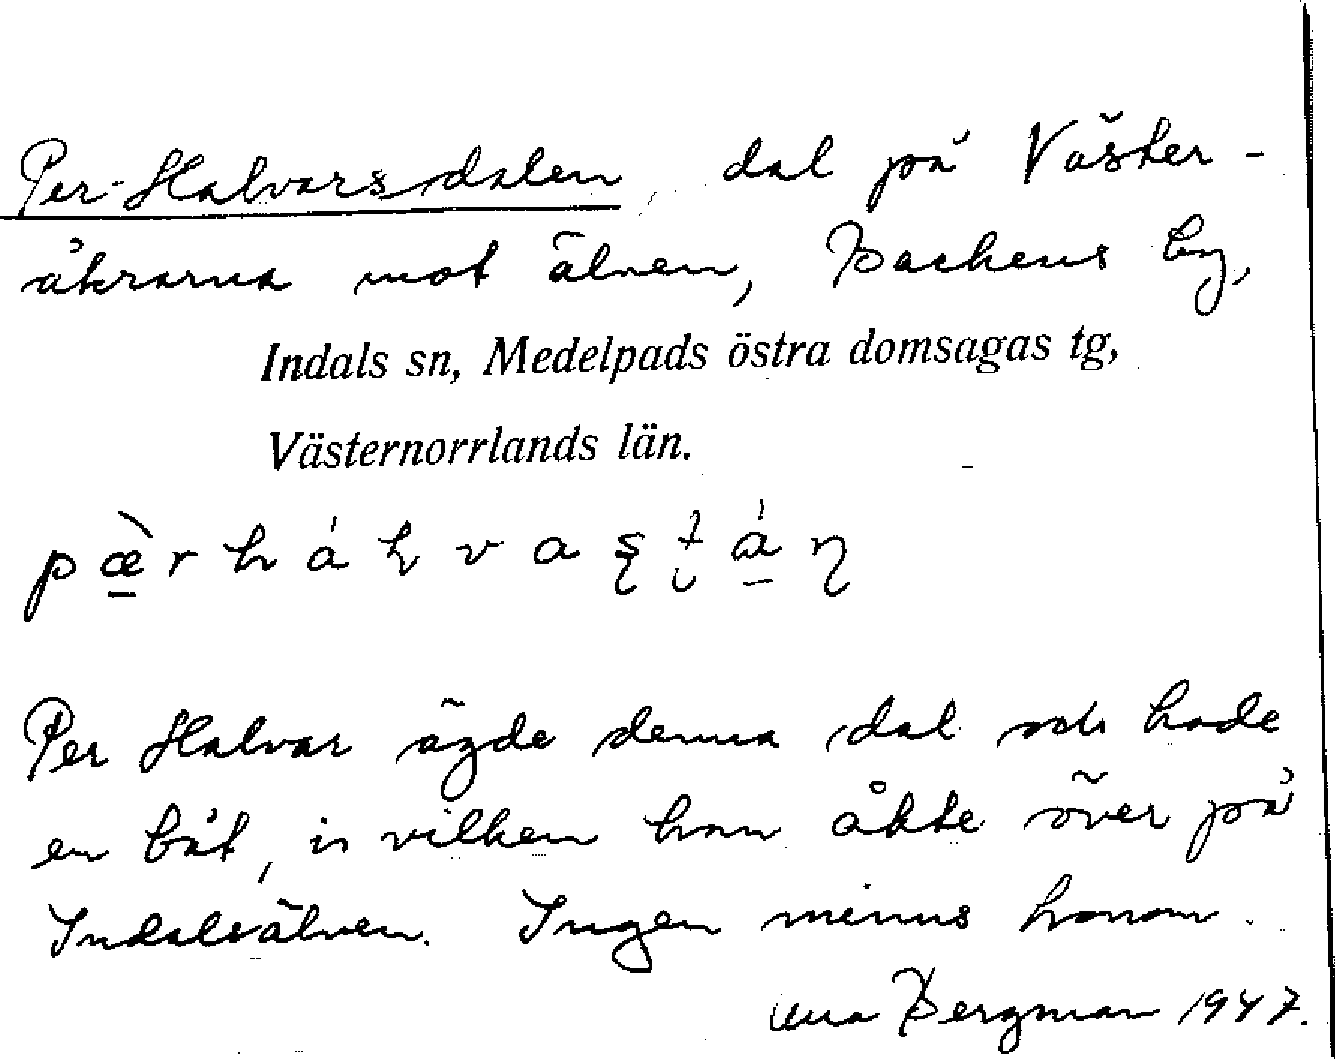 Per-Halvarsdalen, dal på Väster-
åkrarna mot älven, Backens by,
Indals sn, Medelpads östra domsagas tg,
Västernorrlands län.
Per Halvar ägde denna dal och hade
en båt, i vilken han åkte över på
Indalsälven. Ingen minns honom.
Bergman 1947.